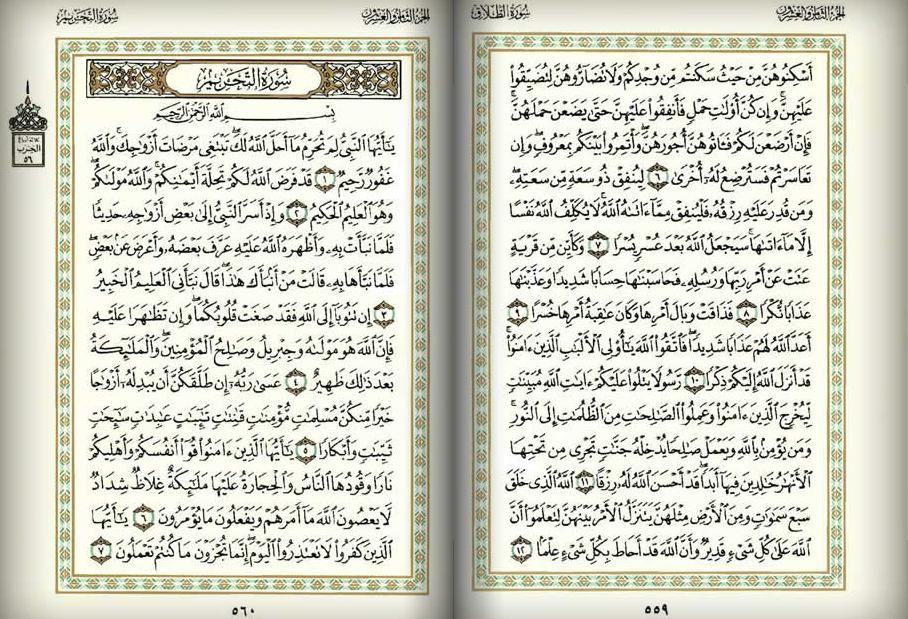 الجزء الثامن والعشرون
سورة الطلاق
أَسْكِنُوهُنَّ مِنْ حَيْثُ سَكَنتُم مِّن وُجْدِكُمْ وَلَا تُضَآرُّوهُنَّ لِتُضَيِّقُوا۟
عَلَيْهِنَّ ۚ وَإِن كُنَّ أُو۟لَـٰتِ حَمْلٍ فَأَنفِقُوا۟ عَلَيْهِنَّ حَتَّىٰ يَضَعْنَ حَمْلَهُنَّ ۚ
فَإِنْ أَرْضَعْنَ لَكُمْ فَـَٔاتُوهُنَّ أُجُورَهُنَّ ۖ وَأْتَمِرُوا۟ بَيْنَكُم بِمَعْرُوفٍ ۖ وَإِن
تَعَاسَرْتُمْ فَسَتُرْضِعُ لَهُۥٓ أُخْرَىٰ ٦ لِيُنفِقْ ذُو سَعَةٍ مِّن سَعَتِهِۦ ۖ
وَمَن قُدِرَ عَلَيْهِ رِزْقُهُۥ فَلْيُنفِقْ مِمَّآ ءَاتَىٰهُ ٱللَّهُ ۚ لَا يُكَلِّفُ ٱللَّهُ نَفْسًا
إِلَّا مَآ ءَاتَىٰهَا ۚ سَيَجْعَلُ ٱللَّهُ بَعْدَ عُسْرٍ يُسْرًا ٧ وَكَأَيِّن مِّن قَرْيَةٍ
عَتَتْ عَنْ أَمْرِ رَبِّهَا وَرُسُلِهِۦ فَحَاسَبْنَـٰهَا حِسَابًا شَدِيدًا وَعَذَّبْنَـٰهَا
عَذَابًا نُّكْرًا ٨ فَذَاقَتْ وَبَالَ أَمْرِهَا وَكَانَ عَـٰقِبَةُ أَمْرِهَا خُسْرًا ٩
أَعَدَّ ٱللَّهُ لَهُمْ عَذَابًا شَدِيدًا ۖ فَٱتَّقُوا۟ ٱللَّهَ يَـٰٓأُو۟لِى ٱلْأَلْبَـٰبِ ٱلَّذِينَ ءَامَنُوا۟ ۚ
قَدْ أَنزَلَ ٱللَّهُ إِلَيْكُمْ ذِكْرًا ١٠ رَّسُولًا يَتْلُوا۟ عَلَيْكُمْ ءَايَـٰتِ ٱللَّهِ مُبَيِّنَـٰتٍ
لِّيُخْرِجَ ٱلَّذِينَ ءَامَنُوا۟ وَعَمِلُوا۟ ٱلصَّـٰلِحَـٰتِ مِنَ ٱلظُّلُمَـٰتِ إِلَى ٱلنُّورِ ۚ
وَمَن يُؤْمِنۢ بِٱللَّهِ وَيَعْمَلْ صَـٰلِحًا يُدْخِلْهُ جَنَّـٰتٍ تَجْرِى مِن تَحْتِهَا
ٱلْأَنْهَـٰرُ خَـٰلِدِينَ فِيهَآ أَبَدًا ۖ قَدْ أَحْسَنَ ٱللَّهُ لَهُۥ رِزْقًا ١١ ٱللَّهُ ٱلَّذِى خَلَقَ
سَبْعَ سَمَـٰوَٰتٍ وَمِنَ ٱلْأَرْضِ مِثْلَهُنَّ يَتَنَزَّلُ ٱلْأَمْرُ بَيْنَهُنَّ لِتَعْلَمُوٓا۟ أَنَّ
ٱللَّهَ عَلَىٰ كُلِّ شَىْءٍ قَدِيرٌ وَأَنَّ ٱللَّهَ قَدْ أَحَاطَ بِكُلِّ شَىْءٍ عِلْمًۢا ١٢
٥٥٩
الجزء الثامن والعشرون
سورة التحريم
سورة التحريم
بِسْمِ ٱللَّهِ ٱلرَّحْمَـٰنِ ٱلرَّحِيمِ
يَـٰٓأَيُّهَا ٱلنَّبِىُّ لِمَ تُحَرِّمُ مَآ أَحَلَّ ٱللَّهُ لَكَ ۖ تَبْتَغِى مَرْضَاتَ أَزْوَٰجِكَ ۚ وَٱللَّهُ
غَفُورٌ رَّحِيمٌ ١ قَدْ فَرَضَ ٱللَّهُ لَكُمْ تَحِلَّةَ أَيْمَـٰنِكُمْ ۚ وَٱللَّهُ مَوْلَىٰكُمْ ۖ
وَهُوَ ٱلْعَلِيمُ ٱلْحَكِيمُ ٢ وَإِذْ أَسَرَّ ٱلنَّبِىُّ إِلَىٰ بَعْضِ أَزْوَٰجِهِۦ حَدِيثًا
فَلَمَّا نَبَّأَتْ بِهِۦ وَأَظْهَرَهُ ٱللَّهُ عَلَيْهِ عَرَّفَ بَعْضَهُۥ وَأَعْرَضَ عَنۢ بَعْضٍ ۖ
فَلَمَّا نَبَّأَهَا بِهِۦ قَالَتْ مَنْ أَنۢبَأَكَ هَـٰذَا ۖ قَالَ نَبَّأَنِىَ ٱلْعَلِيمُ ٱلْخَبِيرُ
٣ إِن تَتُوبَآ إِلَى ٱللَّهِ فَقَدْ صَغَتْ قُلُوبُكُمَا ۖ وَإِن تَظَـٰهَرَا عَلَيْهِ
فَإِنَّ ٱللَّهَ هُوَ مَوْلَىٰهُ وَجِبْرِيلُ وَصَـٰلِحُ ٱلْمُؤْمِنِينَ ۖ وَٱلْمَلَـٰٓئِكَةُ
بَعْدَ ذَٰلِكَ ظَهِيرٌ ٤ عَسَىٰ رَبُّهُۥٓ إِن طَلَّقَكُنَّ أَن يُبْدِلَهُۥٓ أَزْوَٰجًا
خَيْرًا مِّنكُنَّ مُسْلِمَـٰتٍ مُّؤْمِنَـٰتٍ قَـٰنِتَـٰتٍ تَـٰٓئِبَـٰتٍ عَـٰبِدَٰتٍ سَـٰٓئِحَـٰتٍ
ثَيِّبَـٰتٍ وَأَبْكَارًا ٥ يَـٰٓأَيُّهَا ٱلَّذِينَ ءَامَنُوا۟ قُوٓا۟ أَنفُسَكُمْ وَأَهْلِيكُمْ
نَارًا وَقُودُهَا ٱلنَّاسُ وَٱلْحِجَارَةُ عَلَيْهَا مَلَـٰٓئِكَةٌ غِلَاظٌ شِدَادٌ
لَّا يَعْصُونَ ٱللَّهَ مَآ أَمَرَهُمْ وَيَفْعَلُونَ مَا يُؤْمَرُونَ ٦ يَـٰٓأَيُّهَا
ٱلَّذِينَ كَفَرُوا۟ لَا تَعْتَذِرُوا۟ ٱلْيَوْمَ ۖ إِنَّمَا تُجْزَوْنَ مَا كُنتُمْ تَعْمَلُونَ ٧
الحزب
٥٦
٥٦٠